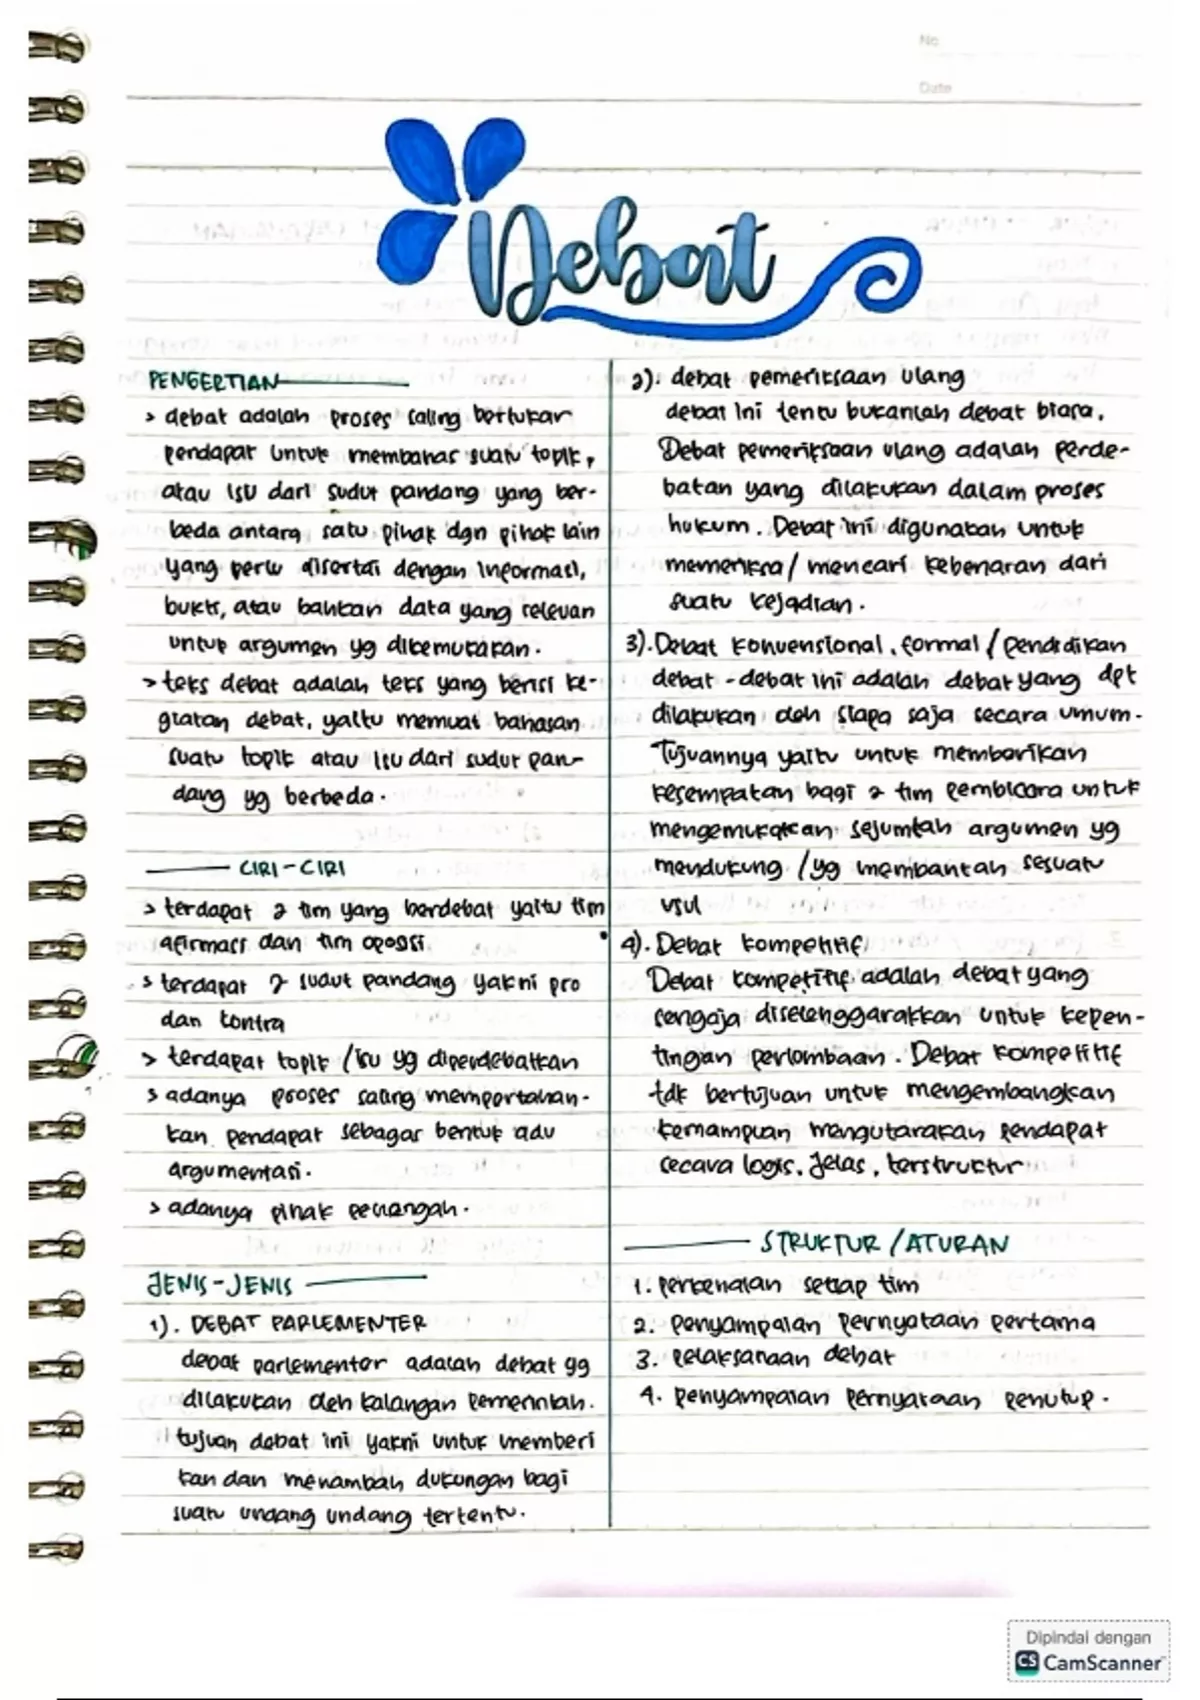 No
Date
Debat
PENGERTIAN
> debat adalah proses saling bertukar
pendapat untuk membahas suatu topik,
atau isu dari sudut pandang yang ber-
beda antara satu pihak dgn pihak lain
yang perlu disertai dengan informasi,
bukti, atau bahkan data yang relevan
untuk argumen yg dikemukakan.
> teks debat adalah teks yang berisi ke-
giatan debat, yaitu memuat bahasan
suatu topik atau isu dari sudut pan-
dang yg berbeda.
CIRI-CIRI
> terdapat 2 tim yang berdebat yaitu tim
afirmasi dan tim oposisi.
> terdapat 2 sudut pandang yakni pro
dan kontra
> terdapat topik / isu yg diperdebatkan
> adanya proses saling mempertahan-
kan pendapat sebagai bentuk adu
argumentasi.
> adanya pihak penengah.
JENIS-JENIS
1). DEBAT PARLEMENTER
debat parlementer adalah debat yg
dilakukan oleh kalangan pemerintah.
tujuan debat ini yakni untuk memberi
kan dan menambah dukungan bagi
suatu undang undang tertentu.
2). debat pemeriksaan ulang
debat ini tentu bukanlah debat biasa.
Debat pemeriksaan ulang adalah perde-
batan yang dilakukan dalam proses
hukum. Debat ini digunakan untuk
memeriksa / mencari kebenaran dari
suatu kejadian.
3). Debat konvensional, formal / pendidikan
debat-debat ini adalah debat yang dpt
dilakukan oleh siapa saja secara umum.
Tujuannya yaitu untuk memberikan
kesempatan bagi 2 tim pembicara untuk
mengemukakan sejumlah argumen yg
mendukung / yg membantah sesuatu
usul
4). Debat kompetitif
Debat kompetitif adalah debat yang
sengaja diselenggarakkan untuk kepen-
tingan perlombaan. Debat kompetitif
tdk bertujuan untuk mengembangkan
kemampuan mengutarakan pendapat
secara logis, jelas, terstruktur
STRUKTUR / ATURAN
1. perkenalan setiap tim
2. penyampaian pernyataan pertama
3. pelaksanaan debat
4. penyampaian pernyataan penutup.
Dipindai dengan
CS CamScanner